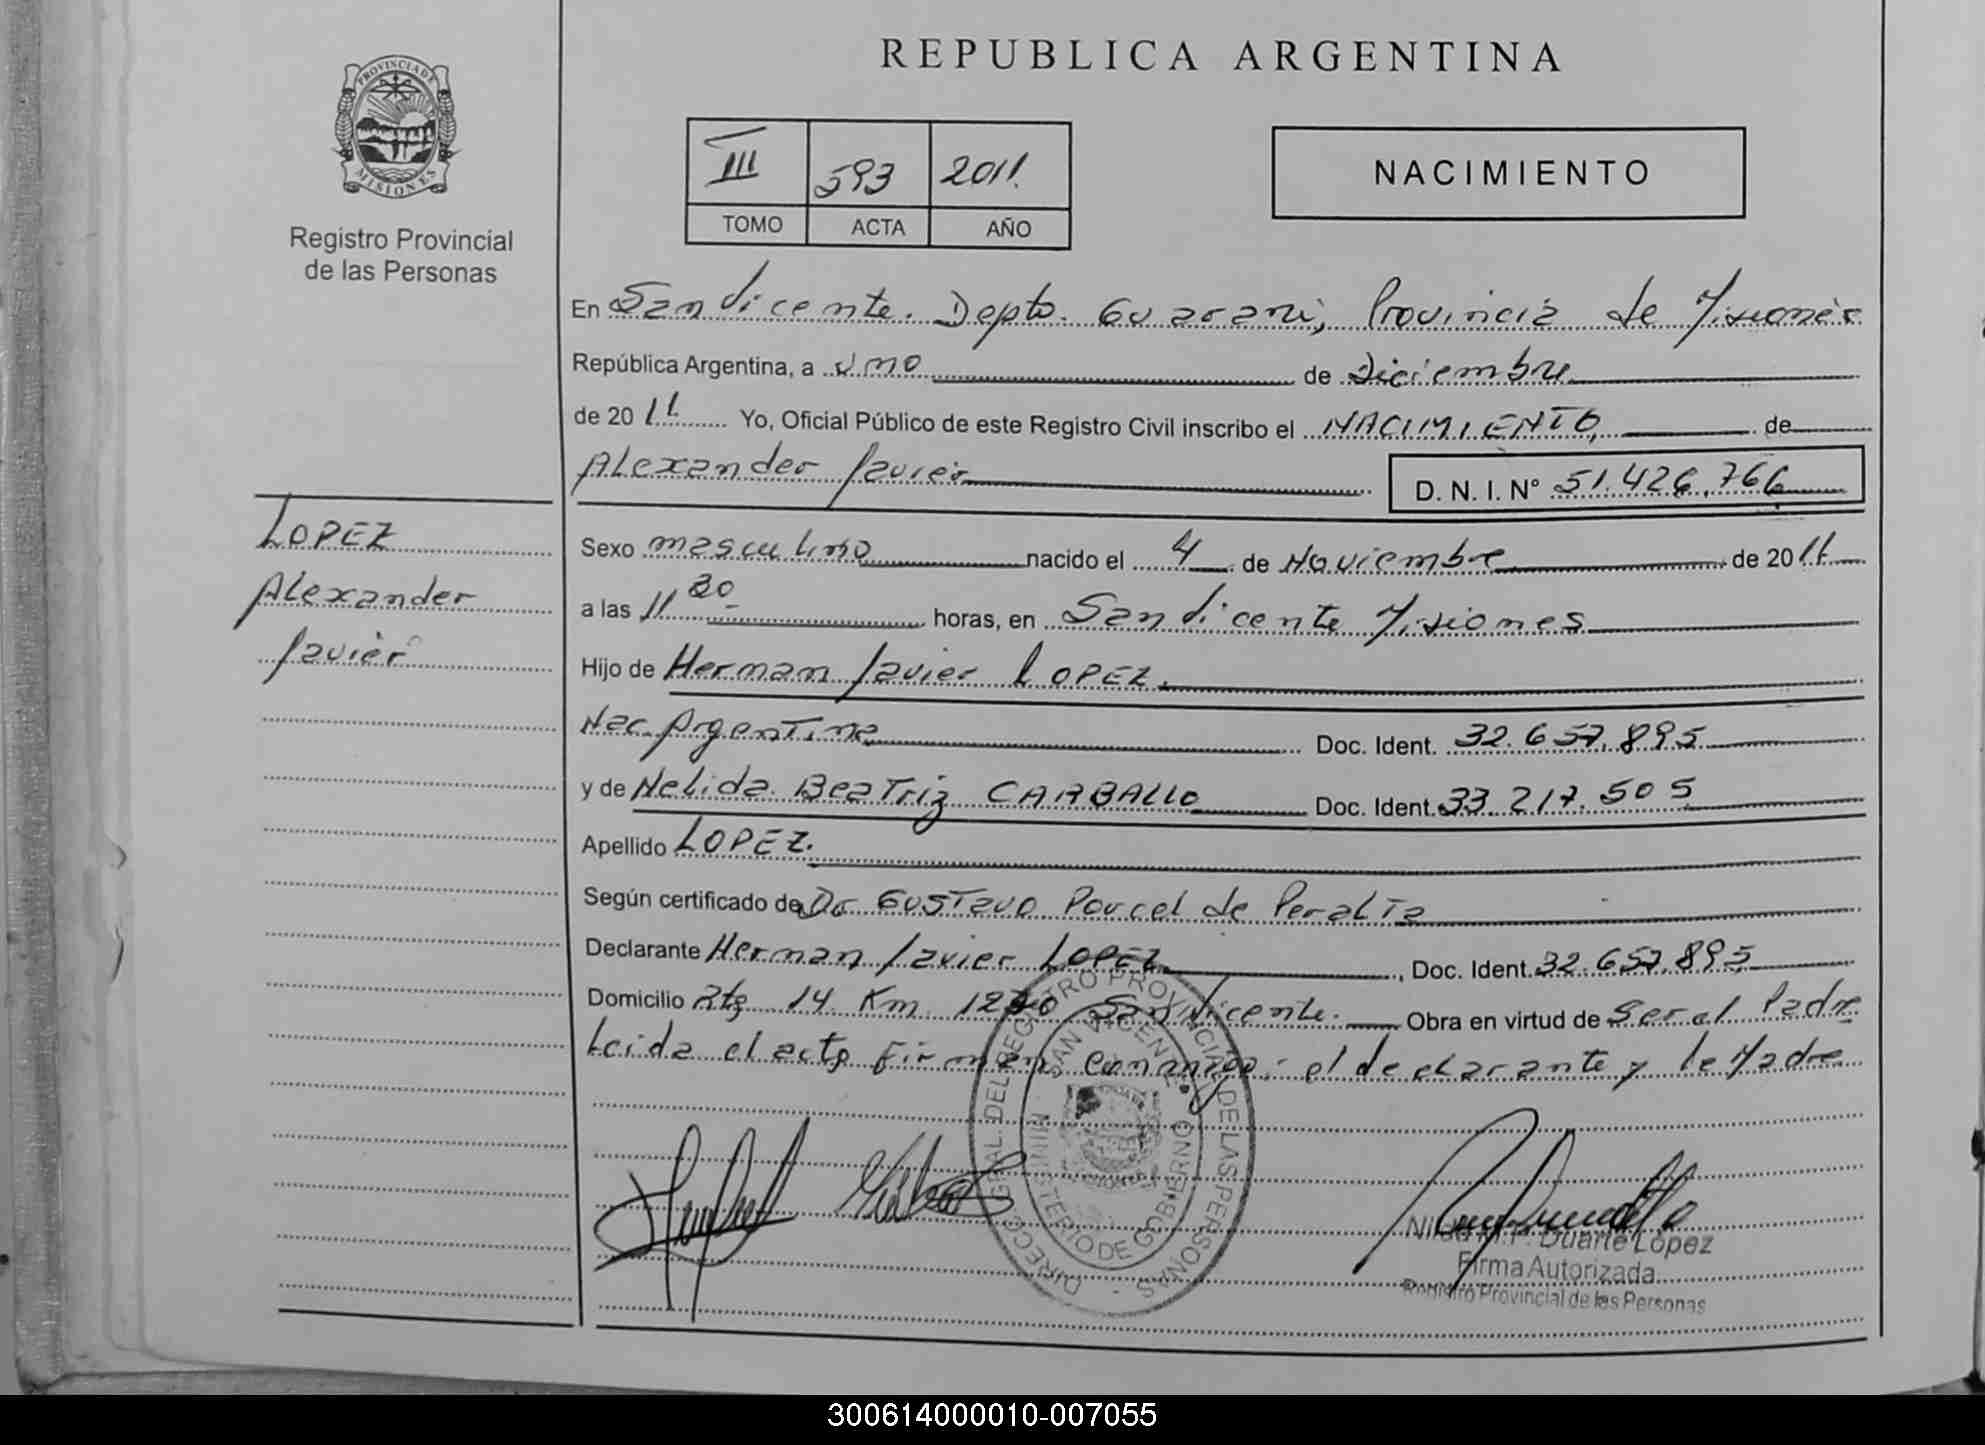 REPUBLICA ARGENTINA
PROVINCIA DE
MISIONES
Registro Provincial
de las Personas
III 593 2011.
TOMO ACTA AÑO
NACIMIENTO
En San Vicente. Depto. Guarani, Provincia de Misiones
República Argentina, a uno de Diciembre
de 2011. Yo, Oficial Público de este Registro Civil inscribo el NACIMIENTO, de
Alexander Javier D. N. I. Nº 51.426.766
LOPEZ
Alexander
Javier
Sexo masculino nacido el 4 de Noviembre de 2011
a las 11 horas, en San Vicente Misiones
Hijo de Herman Javier LOPEZ.
Nac. Argentina Doc. Ident. 32.657.895
y de Nelida Beatriz CARBALLO Doc. Ident. 33.217.505
Apellido LOPEZ.
Según certificado de Dr Gustavo Poucel de Peralta
Declarante Herman Javier LOPEZ, Doc. Ident. 32.657.895
Domicilio 14 Km. San Vicente. Obra en virtud de Ser el Padre
Leida el acta firman conmigo: el declarante y la Madre
DIRECC. GRAL. DEL REGISTRO PROVINCIAL DE LAS PERSONAS
SAN VICENTE
MINISTERIO DE GOBIERNO
Duarte López
Firma Autorizada
Registro Provincial de las Personas
300614000010-007055